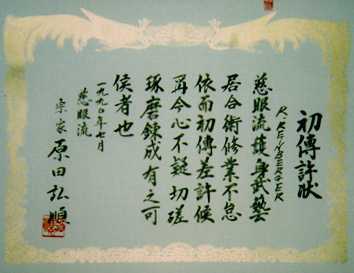 初傳許状
R. REINBERGER
慈眼流 武藝
居合術修業不怠
依而初傳差許候
再今心不疑切瑳
琢磨錬成有之可
候者也
一九九〇年七月
慈眼流
宗家 原田弘順